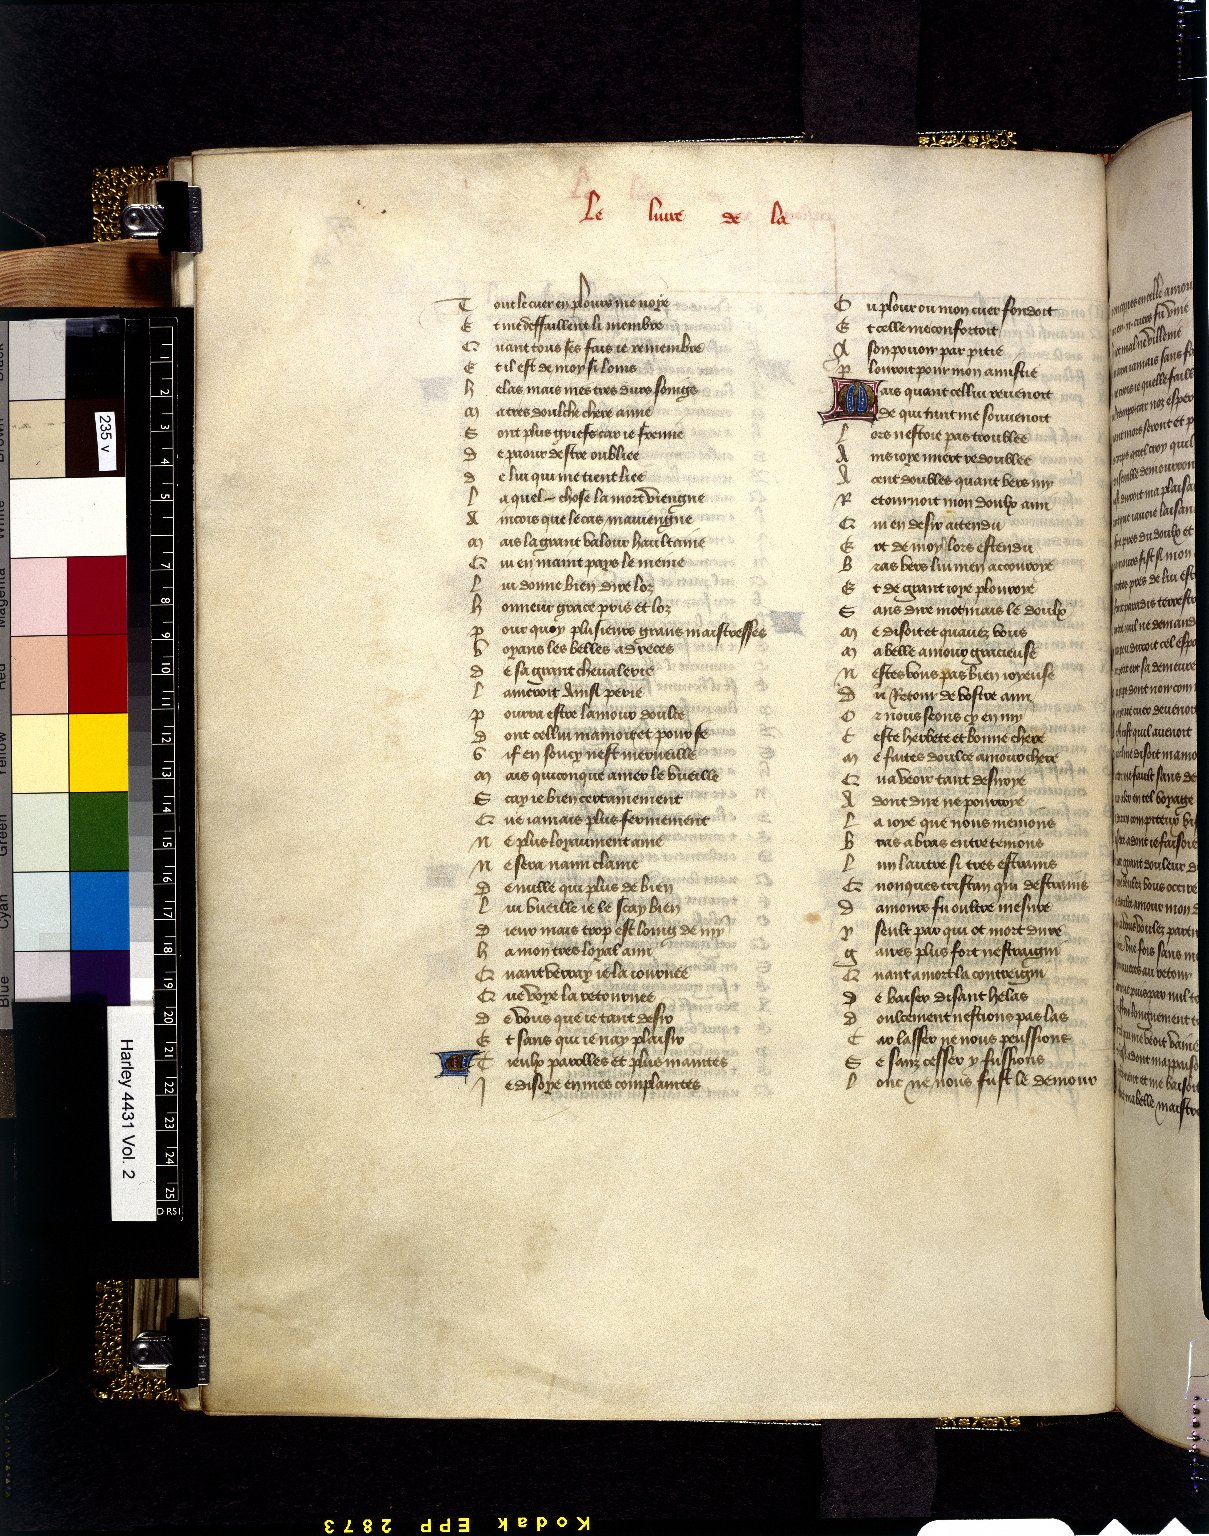 Le liure de la
Tout le cuer en plours me noye
Et me deffaillent li membre
Quant tous ses fais ie remembre
Et il est de moy si loins
helas mais mes tres durs soings
ma tres doulche chere amie
Sont plus griefs car ie fremie
de paour destre oubliee
de lui qui me tient liee
la quel chose la mort viengne
Aincois que le cas mauiengne
mais la grant valour haultaine
Qui en maint pays le meine
lui donne bien dire loz
honneur grace pris et loz
pour quoy plusieurs grans maistresses
voyans les belles adreces
de sa grant cheualerie
lameroit Ainsi perie
pourra estre lamour doulce
dont cellui mamoit et pour se
Sif en soucy nest merueille
mais quiconque amer le vueille
Scay ie bien certainement
Que iamais plus fermement
Ne plus loyaument amé
Ne sera nami clamé
de nulle qui plus de bien
lui vueille ie le scay bien
dieux mais trop est loing de my
ha mon tres loyal ami
Quant verray ie la iournee
Que voye la retournee
de vous que ie tant desir
Et sans qui ie nay plaisir
Tieulx parolles et plus maintes
Je disoye en mes complaintes
Ou plour ou mon cuer fondoit
Et celle me confortoit
A son pouoir par pitié
plouroit pour mon amistié
Mais quant cellui reuenoit
de qui tuit me souuenoit
lors nestoie pas troublee
Ains ioye miert redoublee
A cent doubles quant vers my
Retournoit mon doulx ami
Qui en desir attendu
Ert de moy lors estendu
Bras vers lui men accouroye
Et de grant ioye plouroye
Sans dire mot mais le doulx
me disoit et quauez vous
ma belle amour gracieuse
Nestes vous pas bien ioyeuse
du Retour de vostre ami
Or nous seons cy en my
Ceste herbete et bonne chere
me faites doulce amour chere
Qua veoir tant desiroye
Adont dire ne pourroye
la ioye que nous menions
Bras a bras entretenions
lun lautre si tres estrains
Quonques tristan qui destrains
damours fu oultre mesure
yseult par qui ot mort dure
gaires plus fort nestraigni
Quant a mort la contreigni
de baiser disant helas
doulcement nestions pas las
Car lasser ne nous peussions
Se sanz cesser y fussions
lonc ne nous fust le demour
235 v
Harley 4431 Vol. 2
Kodak EPP 2873